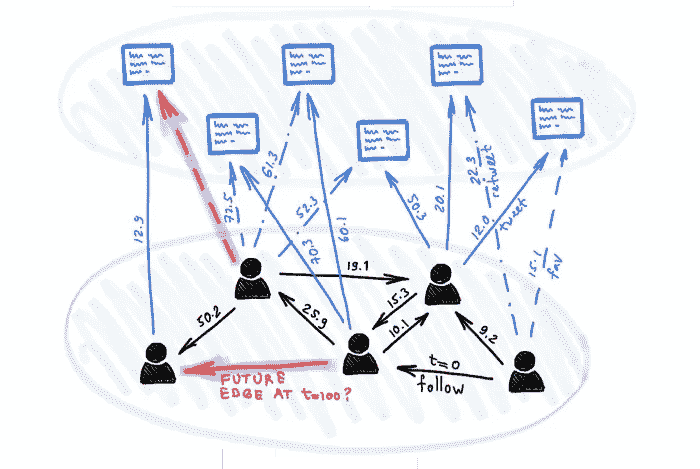 12.9
72.5
61.3
52.3
70.3
60.1
50.3
20.1
22.3
retweet
12.0
tweet
15.1
fav
19.1
50.2
25.9
15.3
10.1
9.2
t=0
follow
FUTURE
EDGE AT t=100?